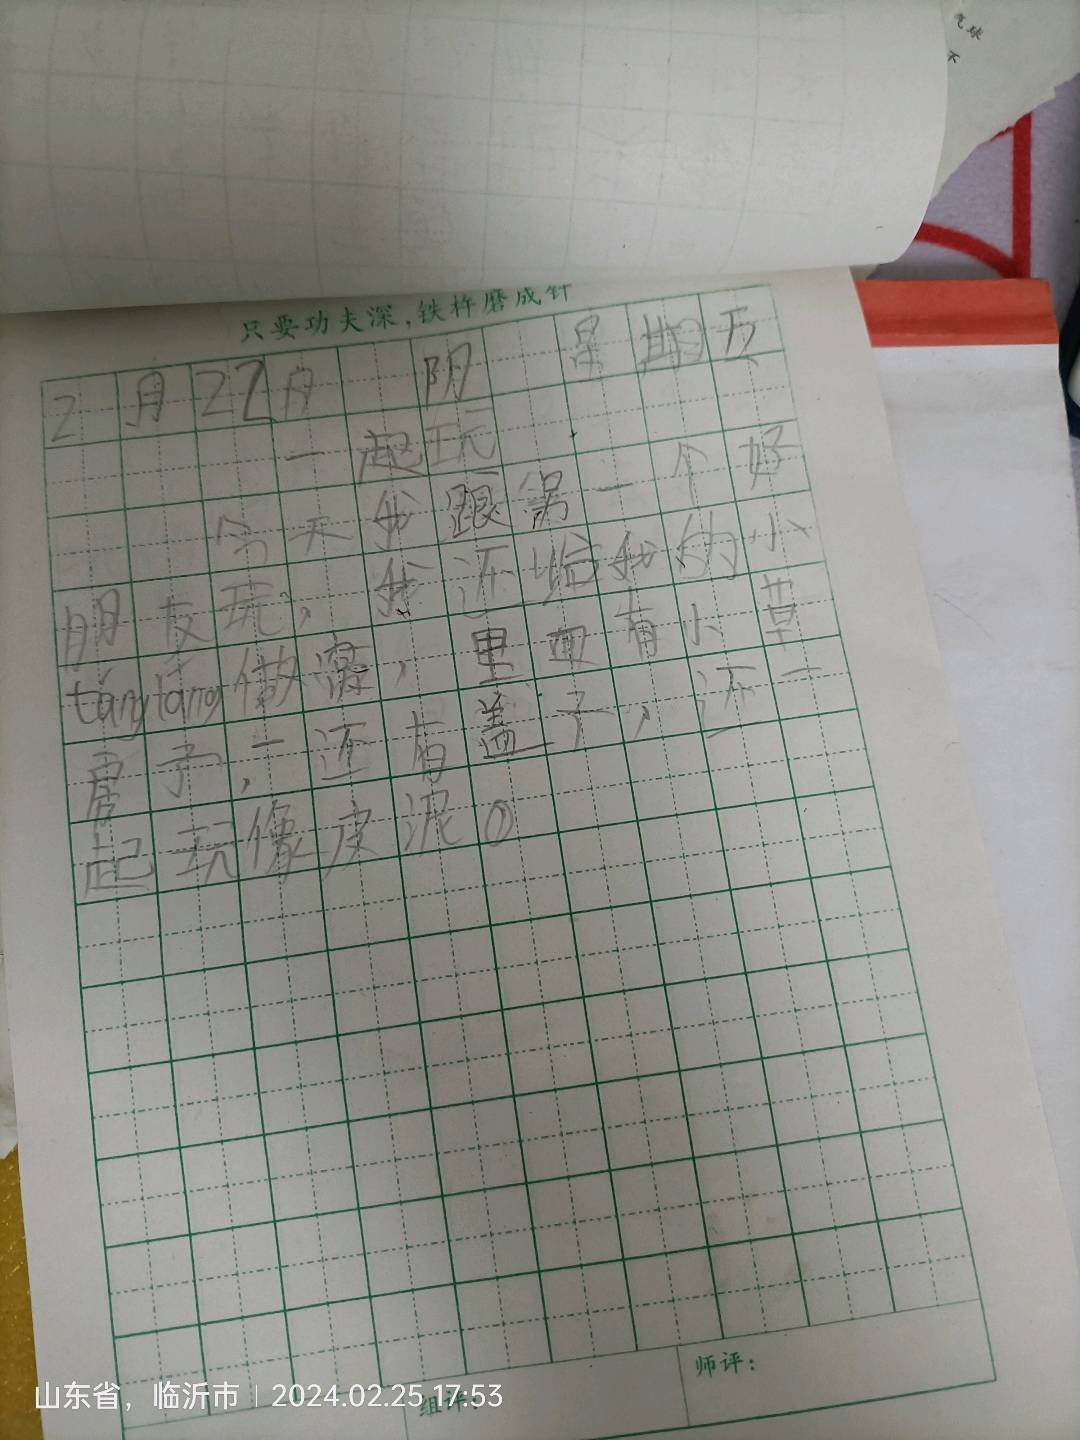 气球
不
只要功夫深,铁杵磨成针
2月22日 阴 星期五
一起玩
今天我跟第一个好
朋友玩,我还给我的小
tángtáng做窝,里面有小草
房子,还有盖子,还一
起玩像皮泥。
师评:
组评:
山东省，临沂市 | 2024.02.25 17:53